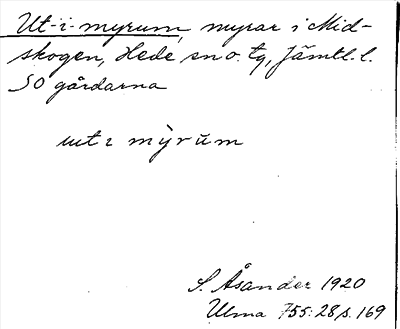 Ut-i-myrum, myrar i Mid-
skogen, Hede sn o. tg, Jämtl. l.
SO gårdarna
ɯt ɪ mỳrŭm
S. Åsander 1920
Ulma 755:28, s. 169